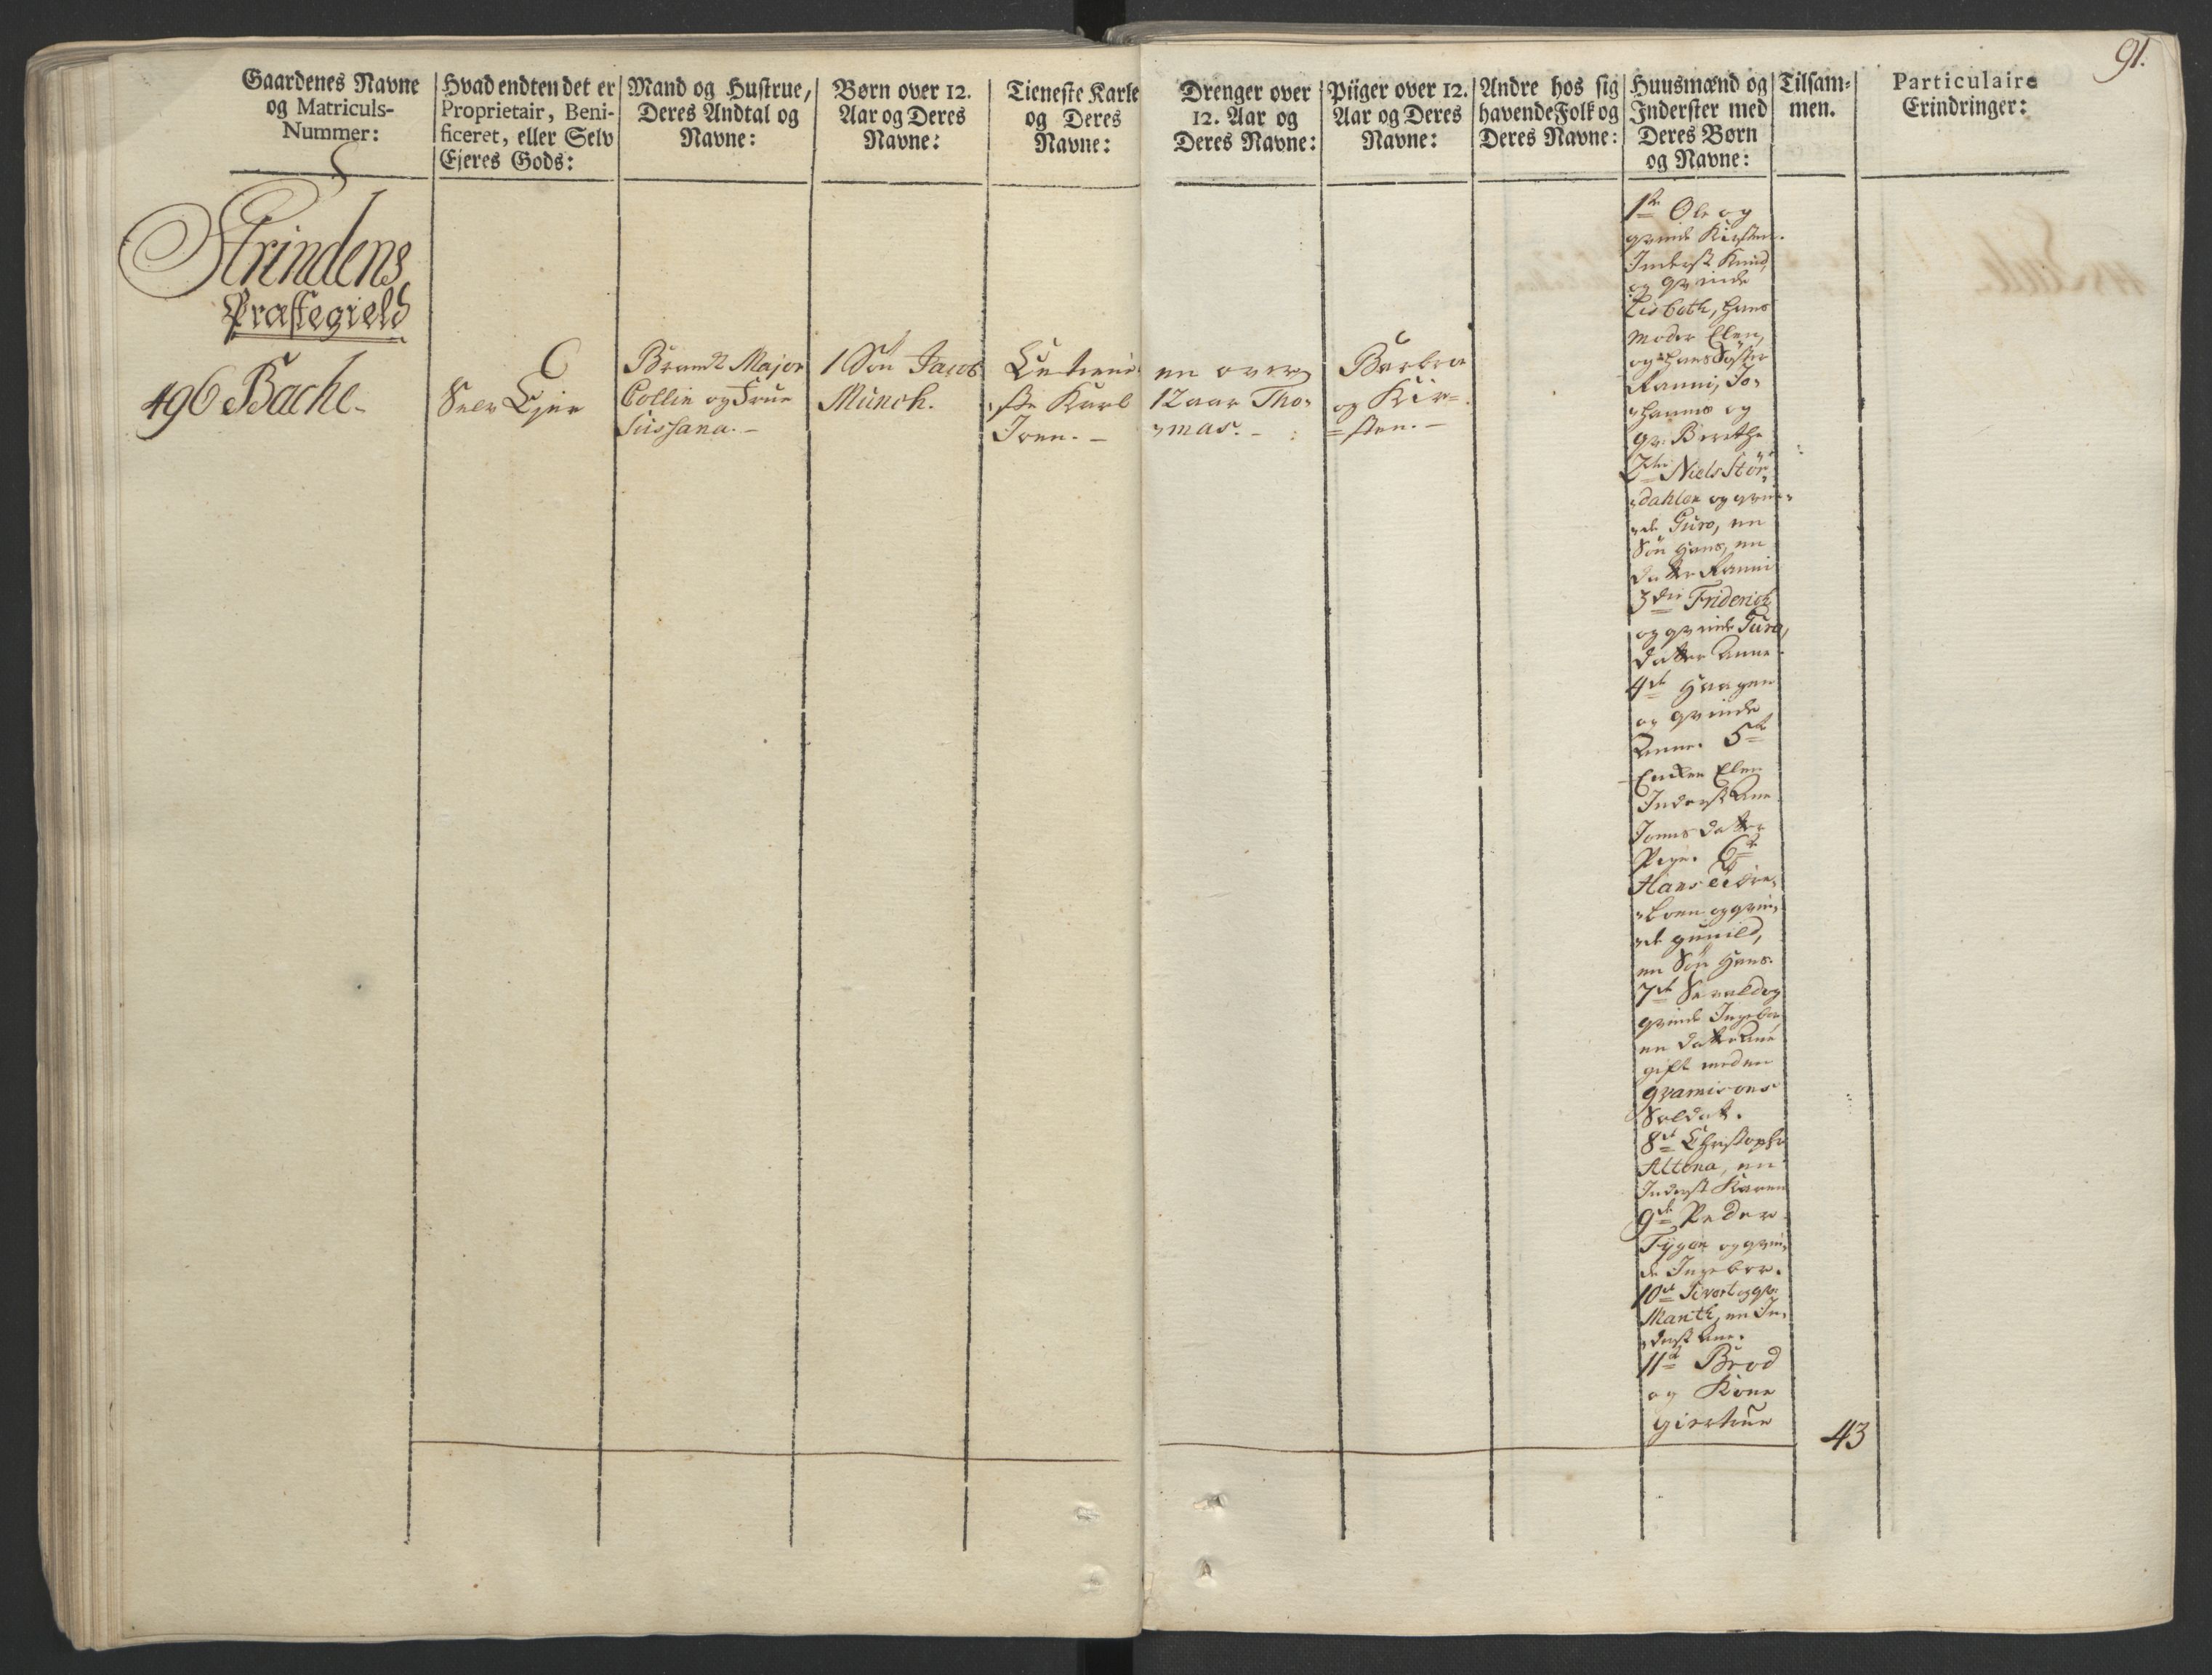 91.
Gaardenes Navne
og Matriculs-
Nummer:
Hvad endten det er
Proprietair, Beni-
ficeret, eller Selv
Ejeres Gods:
Mand og Hustrue,
Deres Andtal og
Navne:
Børn over 12.
Aar og Deres
Navne:
Tieneste Karle
og Deres
Navne:
Drenger over
12. Aar og
Deres Navne:
Piiger over 12.
Aar og Deres
Navne:
Andre hos sig
havende Folk og
Deres Navne:
Huusmænd og
Inderster med
Deres Børn
og Navne:
Tilsam-
men.
Particulaire
Erindringer:
Strindens
Præstegield
496 Bache.
Selv Ejer
Major
Collin og Frue
Sussana.
1 Søn Jacob
Münch.
En tieni-
ste Karl
Iven.
en over
12 aar Tho-
mas.
Barbra
og Kir=
=sten.
1te Ole og
qvinde Kirsten.
Inderst Knud
og qvinde
Lisbeth, hans
Moder Elen,
og hans Søster
Ranni, Jo-
hannes og
qv: Berethe
2den Niels Stør-
dahlen og qvin-
de Guro, en
Søn Hans, en
datter Ranni
3die Friderich
og qvinde Guro,
datter Anne
4de Haagen
og qvinde
Anne. 5te
Enken Elen
Inderst Ane
Jonnsdatter
Pige. 6te
Hans
boen og qvin-
de gunild,
en Søn Hans.
7de og
qvinde Ingebor
en datter Ane
gift med en
qvarnisons
Soldat.
8de Christopher
Altona, en
Inderst Karen
9de Peder
Fygen og qvin-
de Ingebor.
10de Sivert og qv:
Marith, en In-
derst Ane.
11te Brod
og Kone
giertrue
43